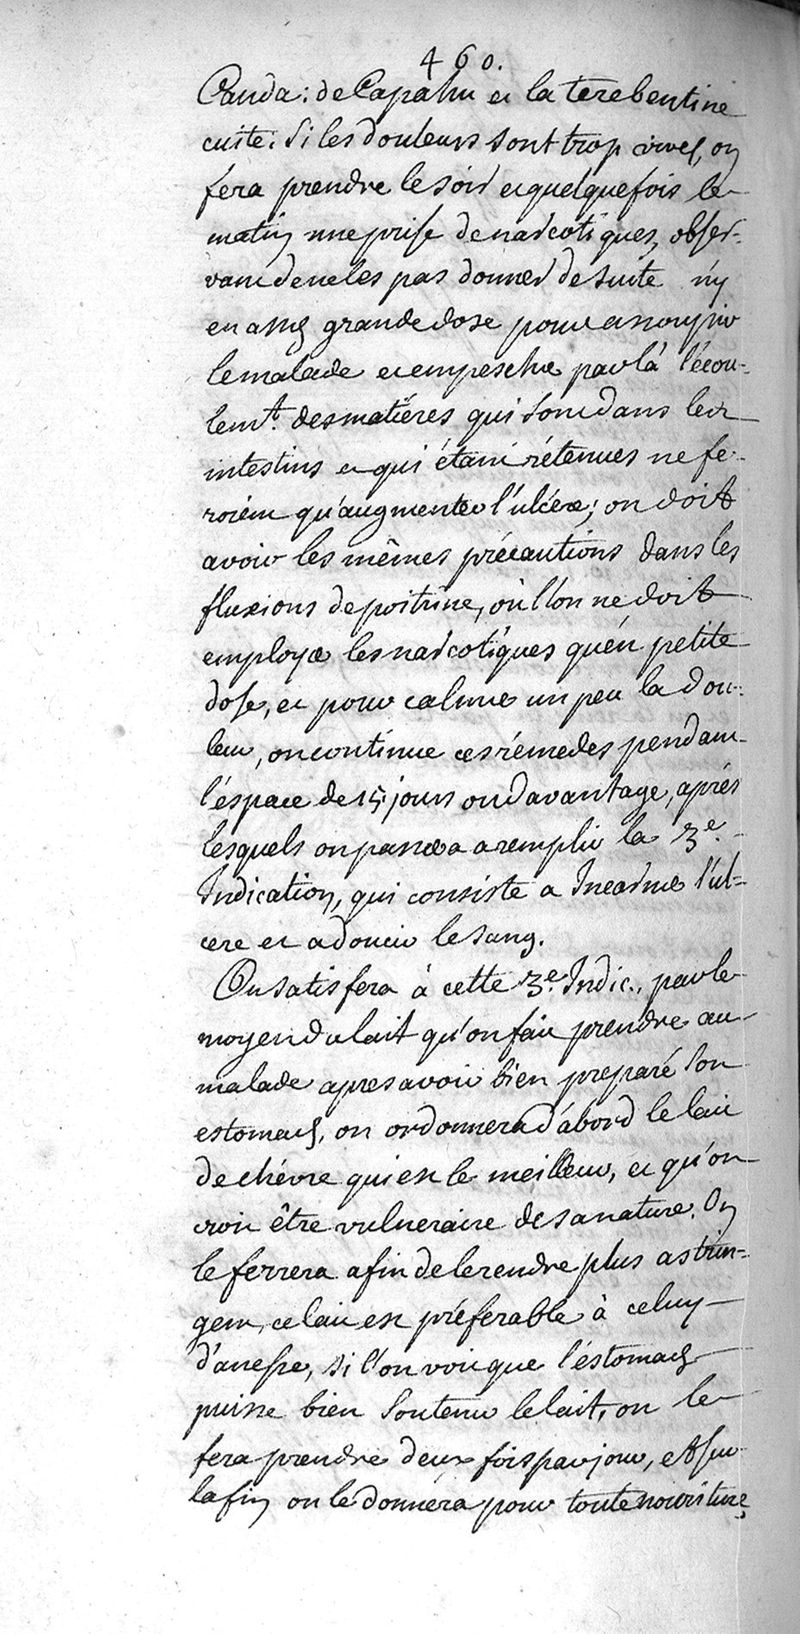 460.
Canda: de Capahu et la terebentine
cuite. Si les douleurs sont trop vives, on
fera prendre le soir et quelquefois le
matin une prise de narcotiques, obser-
vant de ne les pas donner de suite n'y
en assés grande dose pour assoupir
le malade et empescher par là l'écou-
lem.t des matiéres qui sont dans les
intestins et qui étant rétenues ne fe-
roient qu'augmenter l'ulcére; on doit
avoir les mêmes précautions dans les
fluxions de poitrine, où l'on ne doit
employer les narcotiques qu'en petite
dose, et pour calmer un peu la dou-
leur, on continue ces rémedes pendant
l'éspace de 15 jours ou davantage, aprés
lesquels on passera a remplir la 3.e
Indication, qui consiste a Incarner l'ul-
cere et adoucir le sang.
On satisfera à cette 3.e Indic., par le
moyen du lait qu'on fait prendre au
malade apres avoir bien preparé son
estomach, on ordonnera d'abord le lait
de chévre qui est le meilleur, et qu'on
croit être vulneraire de sa nature. On
le ferrera afin de le rendre plus astrin-
gent, ce lait est préferable à celuy
d'anesse, si l'on voit que l'éstomach
puisse bien soutenir le lait, on le
fera prendre deux fois par jour, et sur
la fin on le donnera pour toute nouriture,